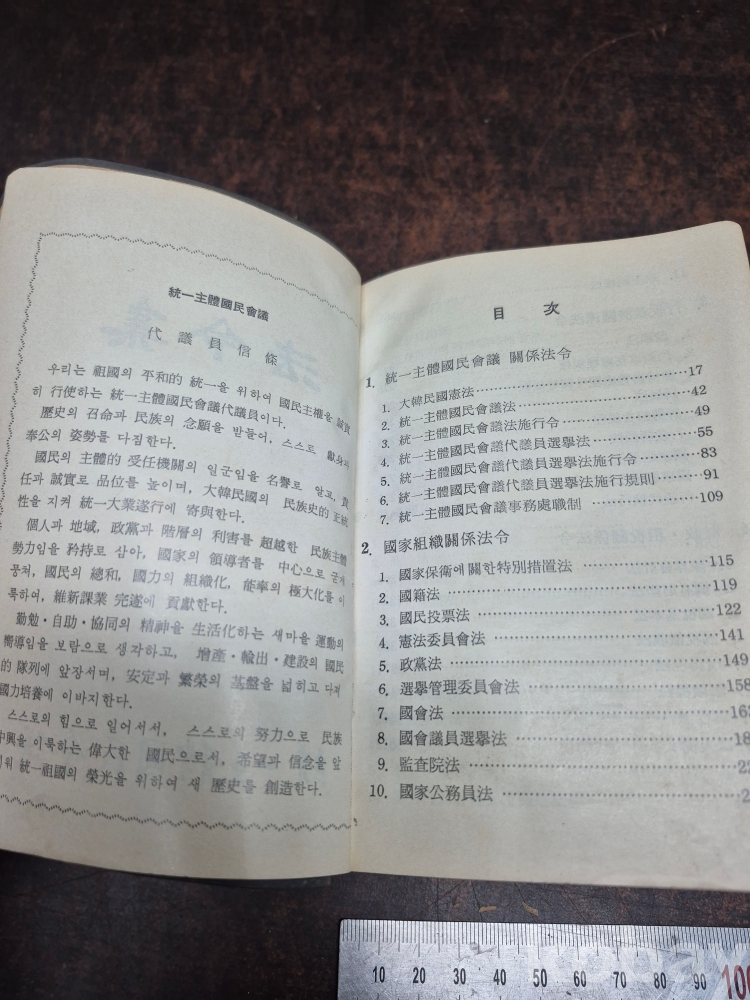 統一主體國民會議
代議員信條
우리는 祖國의 平和的 統一을 위하여 國民主權을 誠實
히 行使하는 統一主體國民會議代議員이다.
歷史의 召命과 民族의 念願을 받들어, 스스로 獻身과
奉公의 姿勢를 다짐한다.
國民의 主體的 受任機關의 일군임을 名譽로 알고, 責
任과 誠實로 品位를 높이며, 大韓民國의 民族史的 正統
性을 지켜 統一大業遂行에 寄與한다.
個人과 地域, 政黨과 階層의 利害를 超越한 民族主體
勢力임을 矜持로 삼아, 國家의 領導者를 中心으로 굳게
뭉쳐, 國民의 總和, 國力의 組織化, 能率의 極大化를 이
룩하여, 維新課業 完遂에 貢獻한다.
勤勉·自助·協同의 精神을 生活化하는 새마을 運動의
嚮導임을 보람으로 생각하고, 增產·輸出·建設의 國民
的 隊列에 앞장서며, 安定과 繁榮의 基盤을 넓히고 다져
國力培養에 이바지한다.
스스로의 힘으로 일어서서, 스스로의 努力으로 民族
中興을 이룩하는 偉大한 國民으로서, 希望과 信念을 앞
세워 統一祖國의 榮光을 위하여 새 歷史를 創造한다.
目 次
1. 統一主體國民會議 關係法令
1. 大韓民國憲法 17
2. 統一主體國民會議法 42
3. 統一主體國民會議法施行令 49
4. 統一主體國民會議代議員選擧法 55
5. 統一主體國民會議代議員選擧法施行令 83
6. 統一主體國民會議代議員選擧法施行規則 91
7. 統一主體國民會議事務處職制 109
2. 國家組織關係法令
1. 國家保衛에關한特別措置法 115
2. 國籍法 119
3. 國民投票法 122
4. 憲法委員會法 141
5. 政黨法 149
6. 選擧管理委員會法 158
7. 國會法 163
8. 國會議員選擧法
9. 監査院法
10. 國家公務員法
10 20 30 40 50 60 70 80 90 100